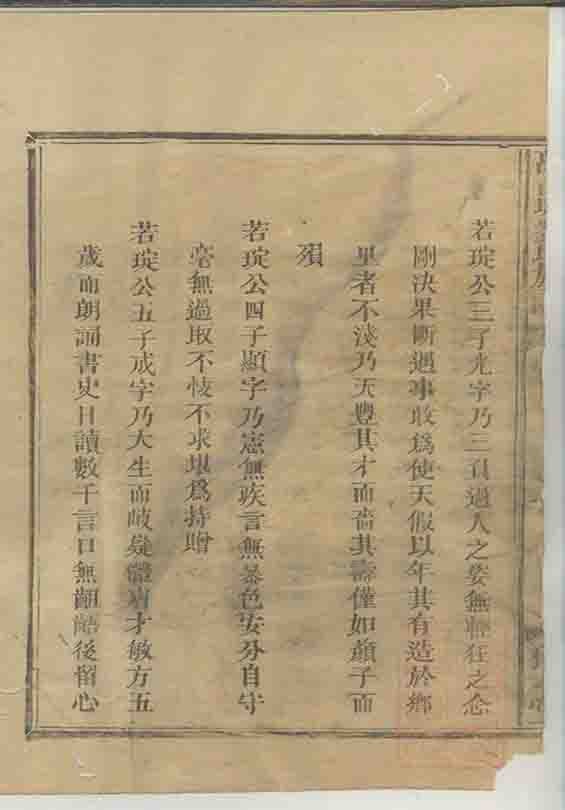 若琔公三子光字乃三負過人之姿無輕狂之念
剛決果斷遇事敢為使天假以年其有造於鄉
里者不淺乃天豐其才而嗇其壽僅如顏子而
殞
若琔公四子顯字乃憲無疾言無暴色安分自守
毫無過取不忮不求堪為持贈
若琔公五子成字乃大生而岐嶷體有才敏方五
歲而朗誦書史日讀數千言口無齟齬後留心